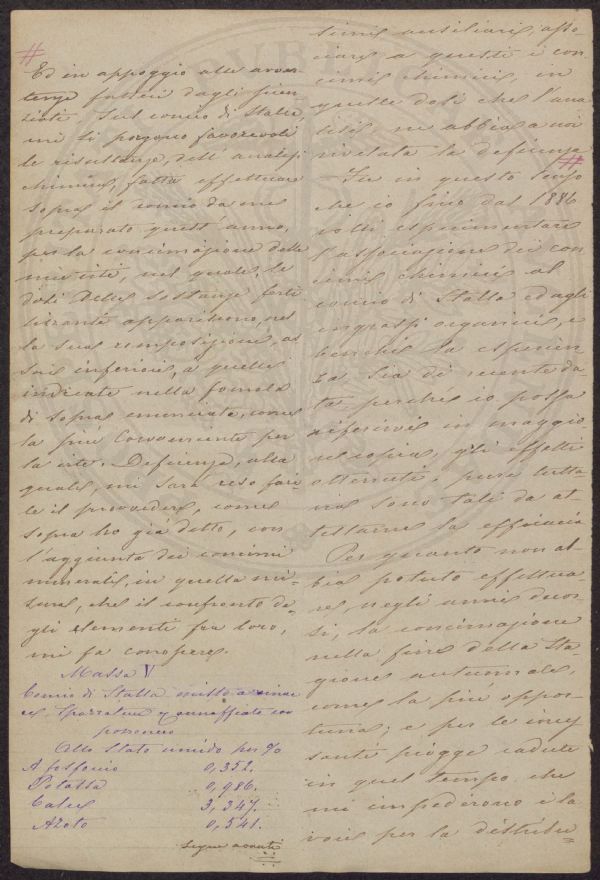 Ed in appoggio alle avver-
tenze fattici dagli scien-
ziati sul concio di stalla,
mi si porgono favorevoli
le risultanze, dell'analisi
chimica, fatta effettuare
sopra il concio da me
preparato quest'anno,
per la concimazione della
mia vite, nel quale, le
dosi delle sostanze ferti-
lizzanti apparirono, nel
la sua composizione, as
sai inferiori, a quelle
indicate nella formola
di sopra enunciata, come
la più conveniente per
la vite. Deficienza, alla
quale, mi sarà reso faci-
le il provvedere, come
sopra ho già detto, con
l'aggiunta dei concimi
minerali, in quella mi-
sura, che il confronto de-
gli elementi fra loro,
mi fa conoscere.
Massa V
Concio di Stalla misto a vinac
ce, spazzature e annaffiato con
pozzonero
Allo stato umido per %
A. fosforico 0,352.
Potassa 0,986.
Calce 3,347.
Azoto 0,541.
segue avanti
cimi ausiliari, asso
ciare a questi i con
cimi chimici, in
quelle dosi che l'ana
lisi, ne abbia a noi
rivelata la deficienza
Fu in questo senso
che io fino dal 1886
volli esperimentare
l'associazione dei con
cimi chimici al
concio di stalla ed agli
ingrassi organici, e
benchè la esperien
za sia di recente da
ta perchè io possa
riferirvi in maggior
copia, gli effetti
ottenuti, pure tutta
via sono tali da at
testarne la efficacia
Per quanto non ab-
bia potuto effettua
re, negli anni decor
si, la concimazione
nella fine della sta
gione autunnale,
come la più oppor
tuna; e per le inces
santi piogge cadute
in quel tempo, che
mi impedirono i la
vori per la distribu=